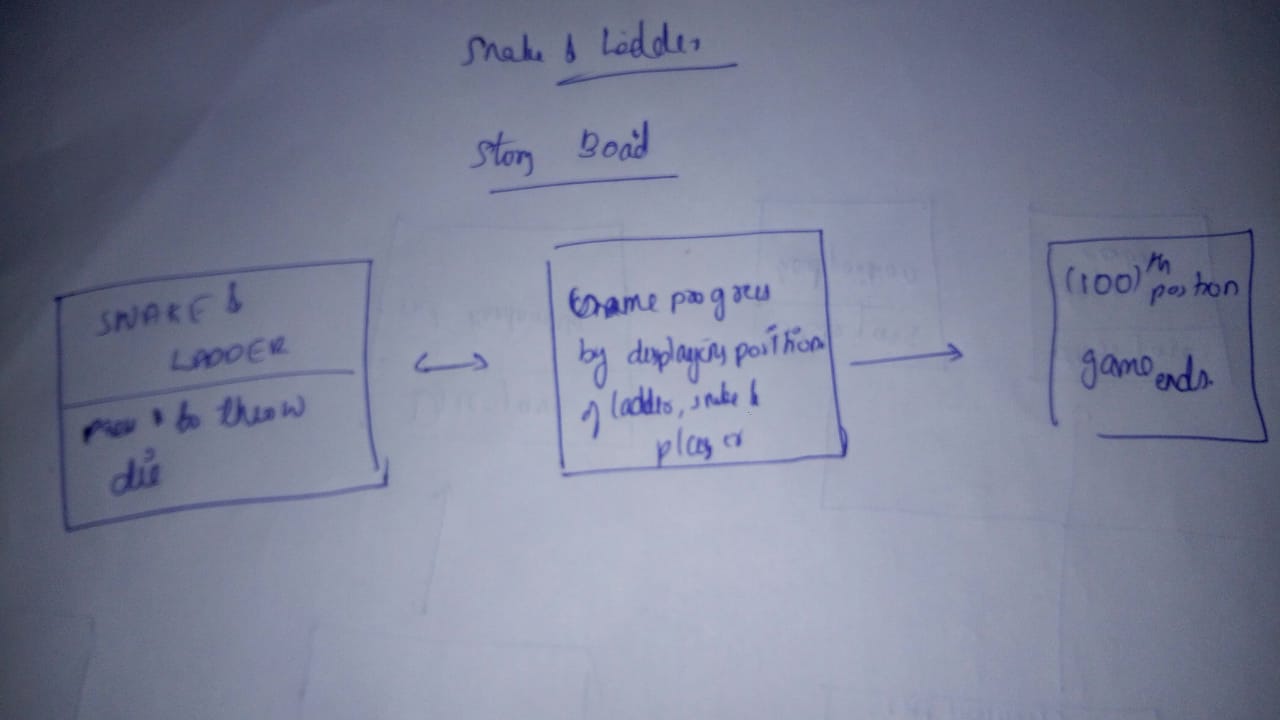 Snake & Ladder
Story Board
SNAKE &
LADDER
to throw
die
Game progress
by displaying position
of ladder, snake &
player
(100)th position
game ends.